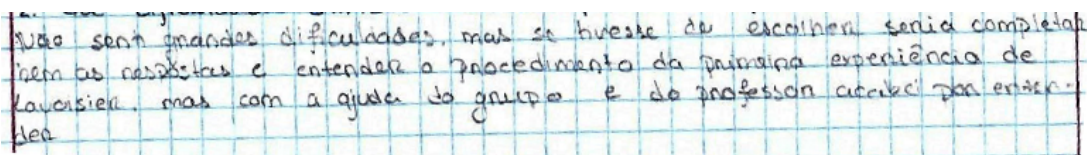 Não senti grandes dificuldades, mas se tivesse de escolher seria completar
bem as respostas e entender o procedimento da primeira experiência de
Lavoisier, mas com a ajuda do grupo e do professor acabei por enten-
der